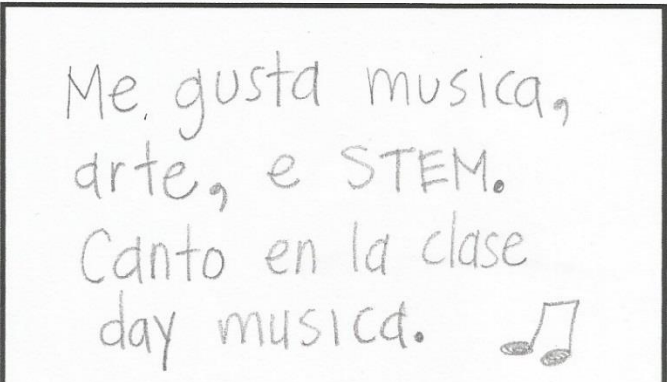 Me gusta musica,
arte, e STEM.
Canto en la clase
day musica.